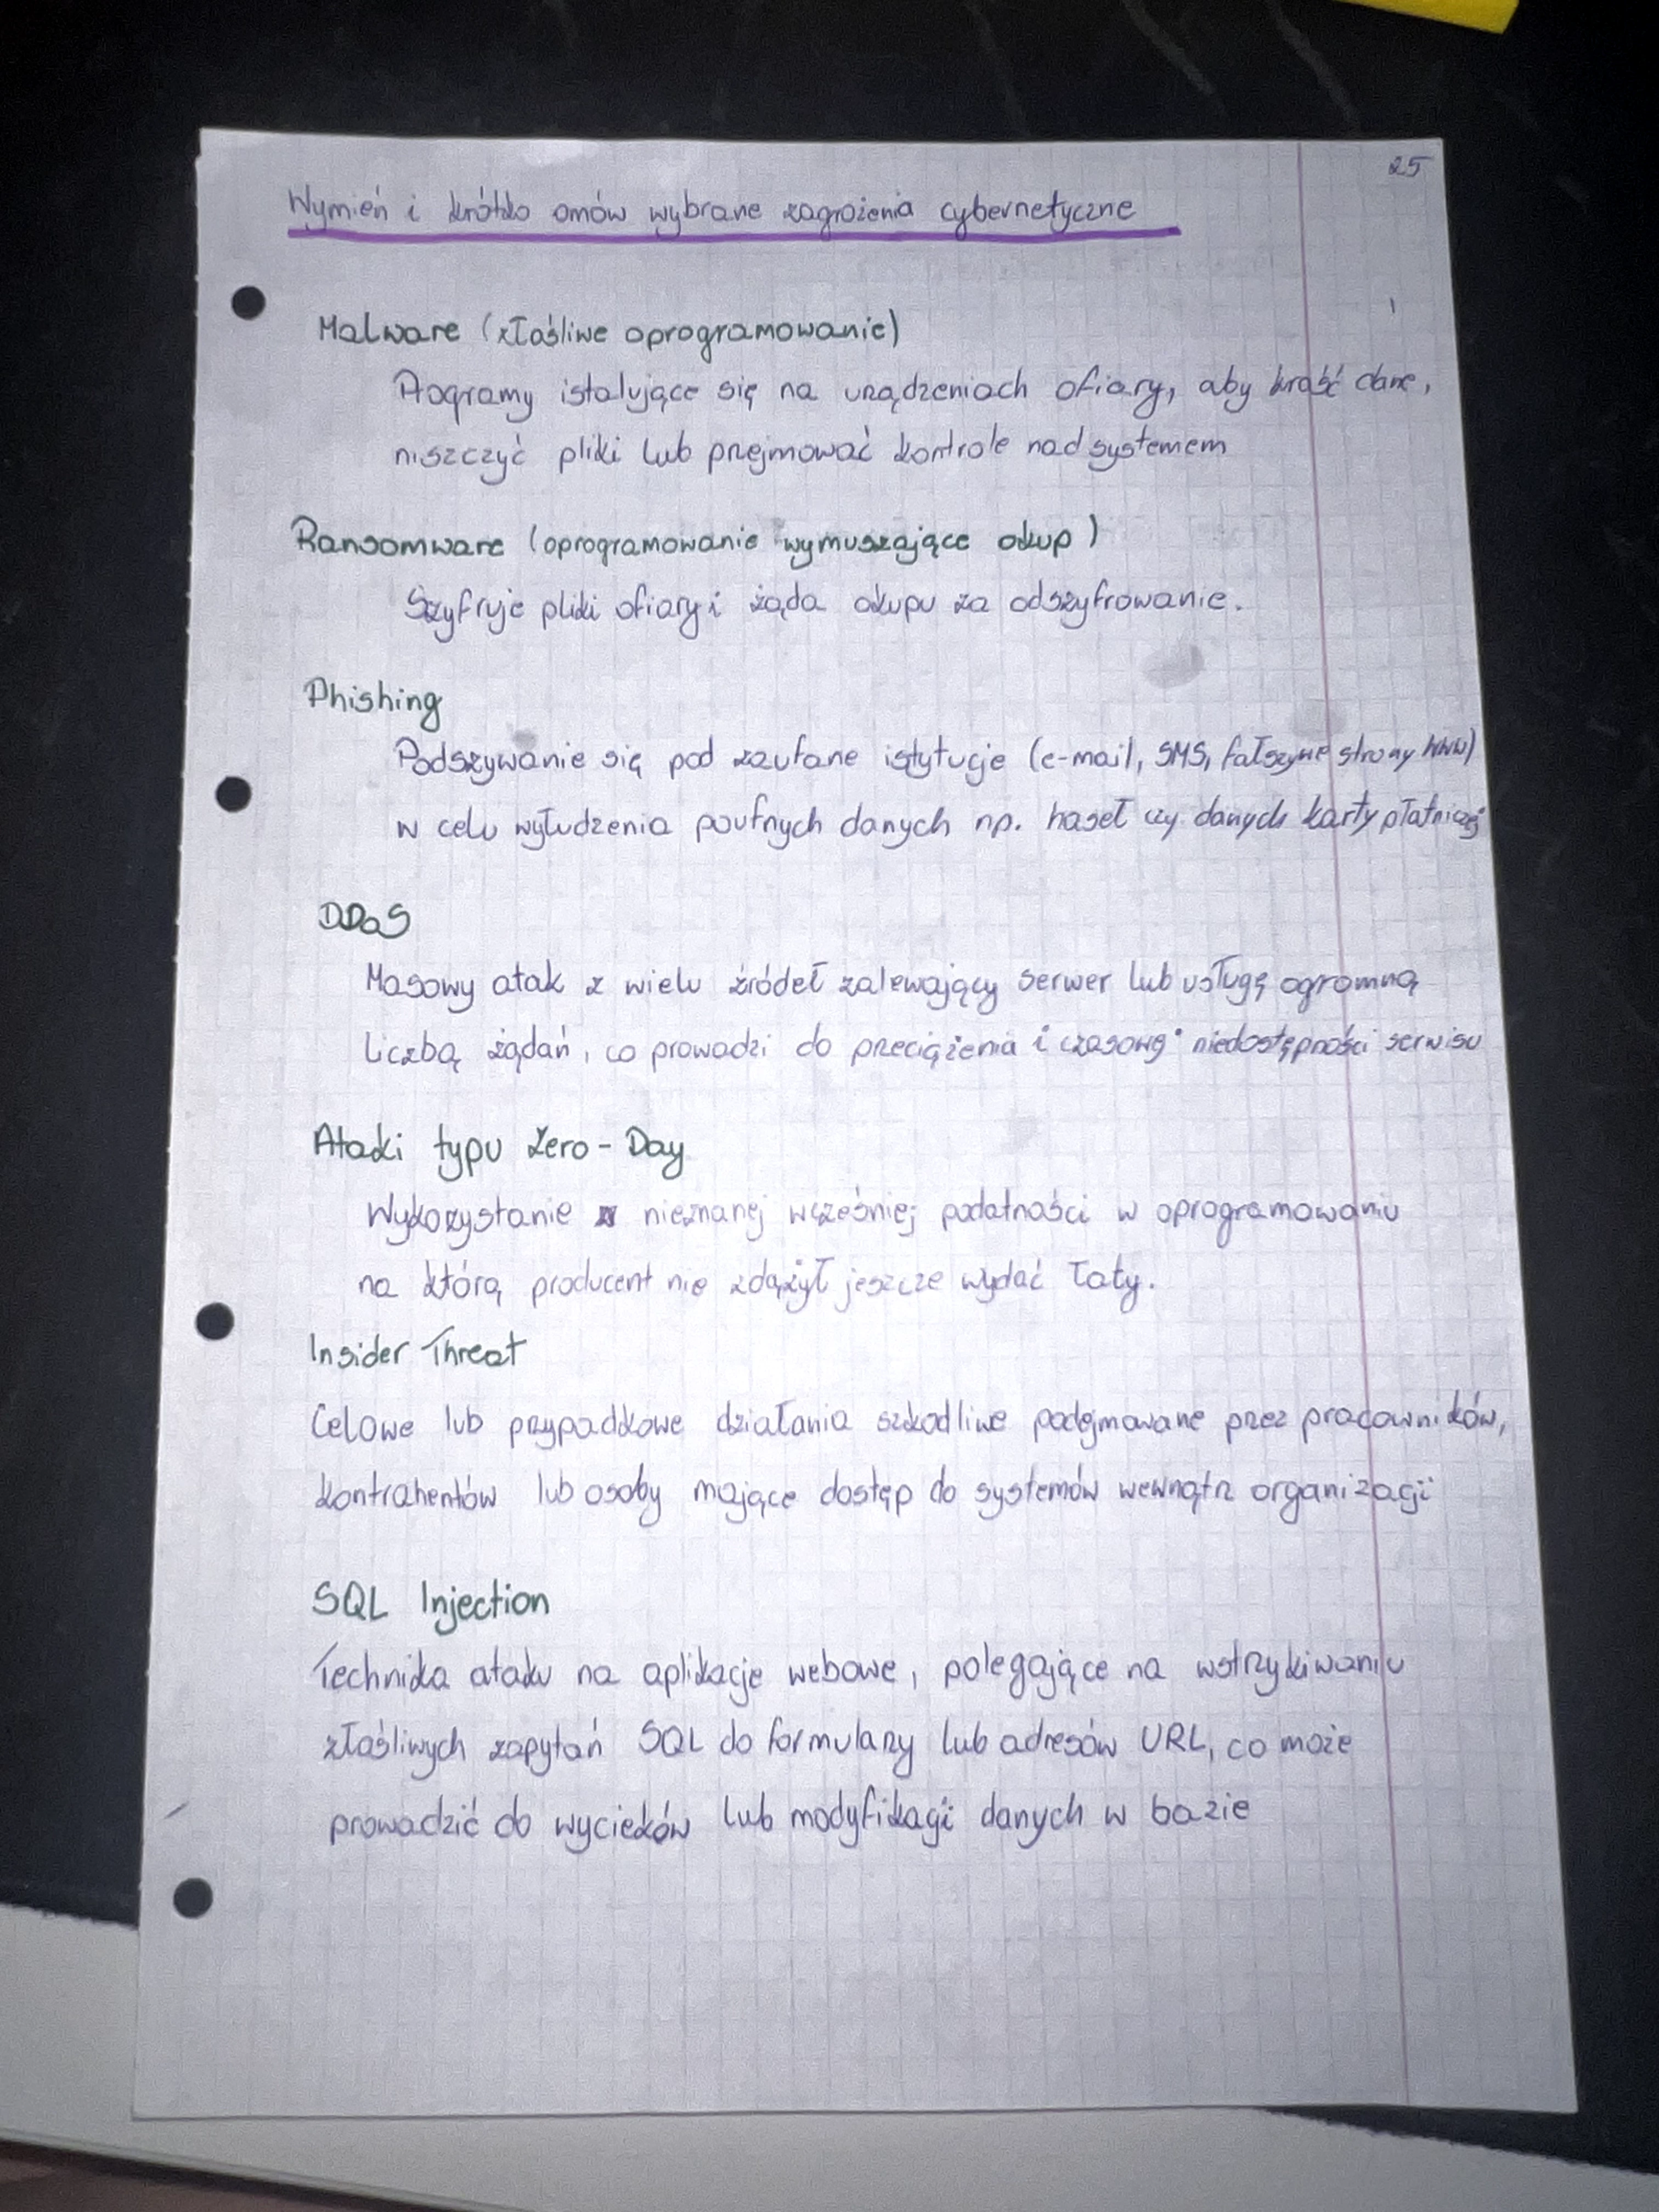 25
Wymień i krótko omów wybrane zagrożenia cybernetyczne
Malware (złośliwe oprogramowanie)
Programy istalujące się na urządzeniach ofiary, aby kraść dane,
niszczyć pliki lub przejmować kontrole nad systemem
Ransomware (oprogramowanie wymuszające okup)
Szyfruje pliki ofiary i żąda okupu za odszyfrowanie.
Phishing
Podszywanie się pod zaufane istytucje (e-mail, SMS, fałszywe strony WWW)
w celu wyłudzenia poufnych danych np. haseł czy danych karty płatniczej
DDoS
Masowy atak z wielu źródeł zalewający serwer lub usługę ogromną
liczbą żądań, co prowadzi do przeciążenia i czasowej niedostępności serwisu
Ataki typu Zero-Day
Wykorzystanie nieznanej wcześniej podatności w oprogramowaniu
na którą producent nie zdążył jeszcze wydać łaty.
Insider Threat
Celowe lub przypadkowe działania szkodliwe podejmowane przez pracowników,
kontrahentów lub osoby mające dostęp do systemów wewnątrz organizacji
SQL Injection
Technika ataku na aplikacje webowe, polegające na wstrzykiwaniu
złośliwych zapytań SQL do formularzy lub adresów URL, co może
prowadzić do wycieków lub modyfikacji danych w bazie